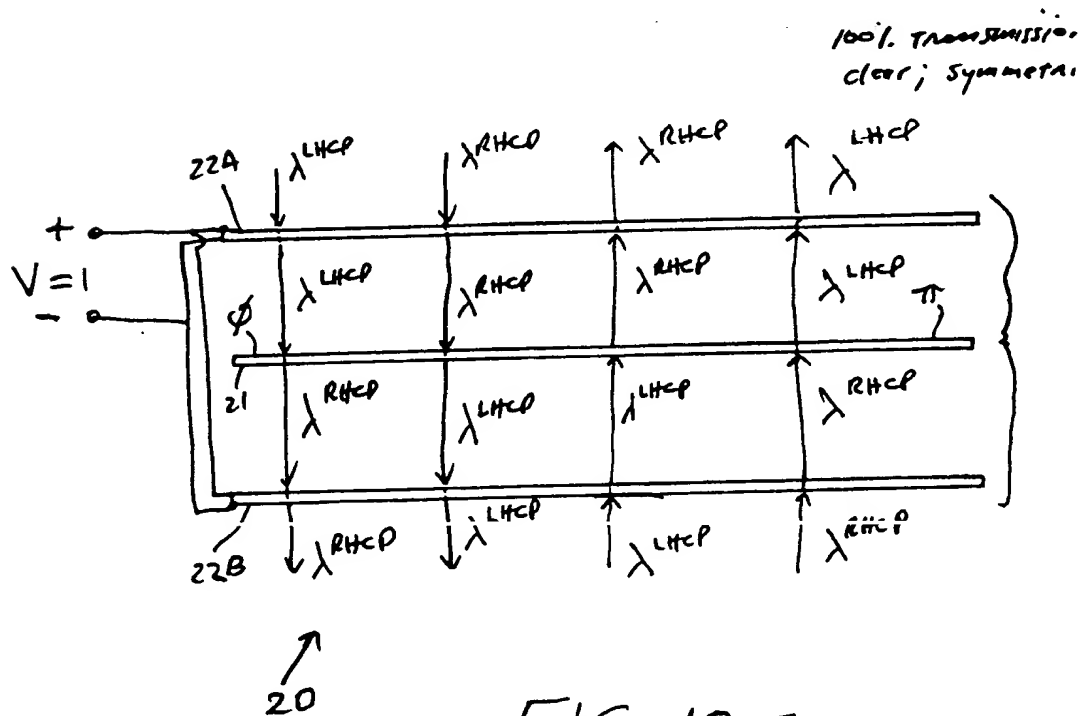 100% Transmissio
clear; Symmetri
22A λ^LHCP λ^RHCP λ^RHCP λ^LHCP
+
V=1
-
λ^LHCP λ^RHCP λ^RHCP λ^LHCP
φ π
21
λ^RHCP λ^LHCP λ^LHCP λ^RHCP
22B λ^RHCP λ^LHCP λ^LHCP λ^RHCP
20